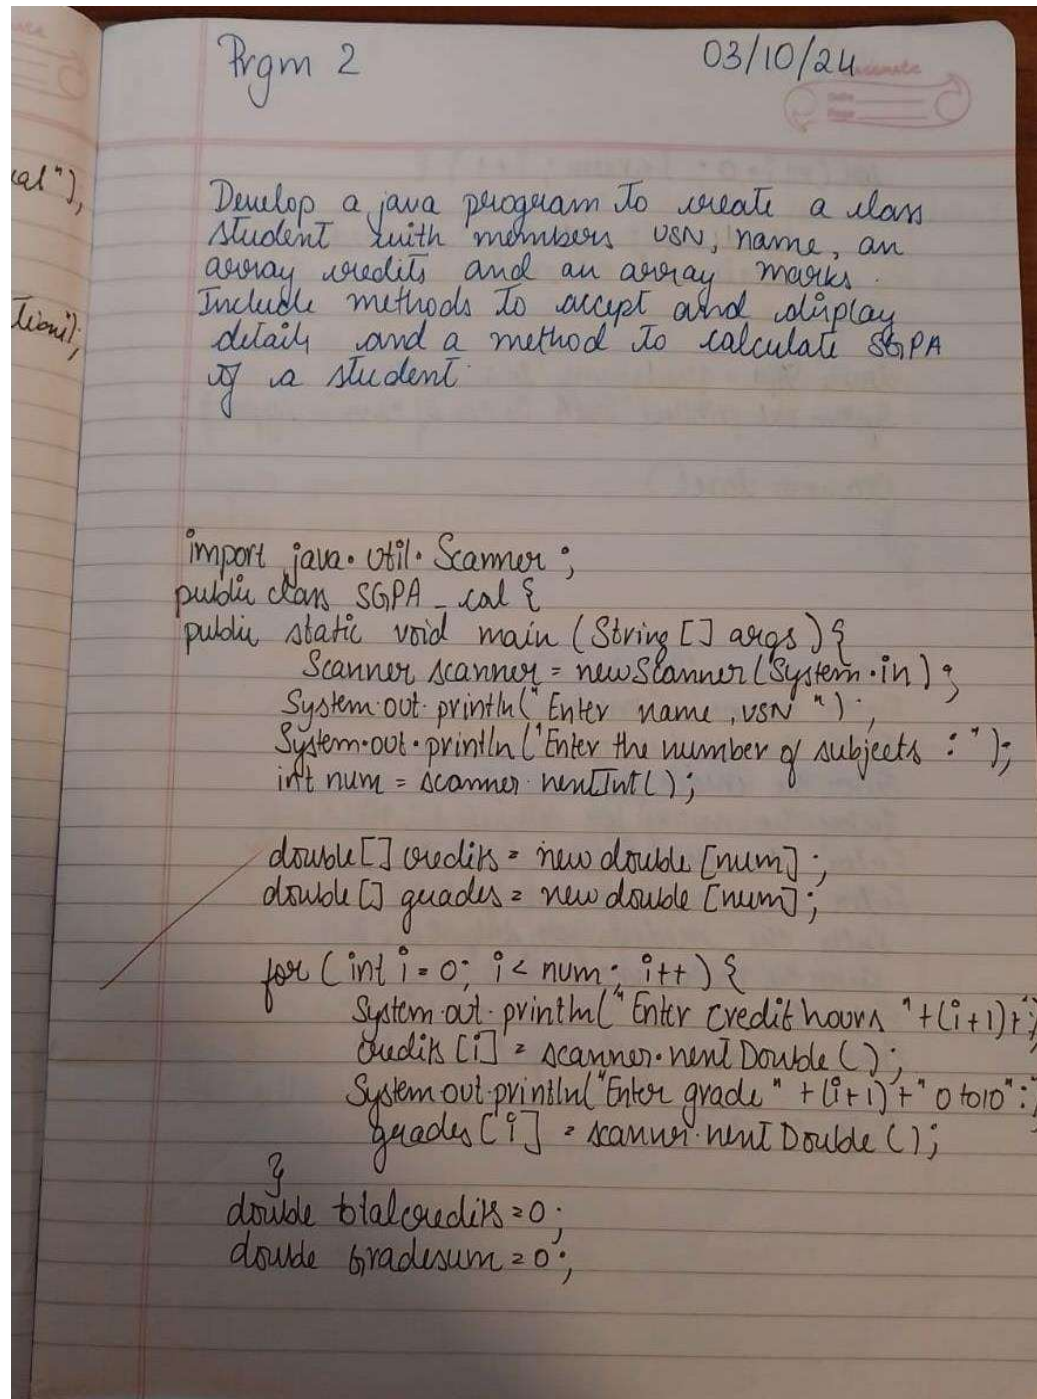 cal"),
tion");
Prgm 2
03/10/24
Develop a java program to create a class
student with members USN, name, an
array credits and an array marks.
Include methods to accept and display
details and a method to calculate SGPA
of a student.
import java.util.Scanner;
public class SGPA_cal {
public static void main (String [] args) {
Scanner scanner = new Scanner (System.in);
System.out.println ("Enter name, USN ");
System.out.println ("Enter the number of subjects : ");
int num = scanner.nextInt();
double [] credits = new double [num];
double [] grades = new double [num];
for (int i = 0; i < num; i++) {
System.out.println (" Enter credit hours "+(i+1)+
credits [i] = scanner.nextDouble ();
System.out.println ("Enter grade " + (i+1) + " 0 to 10":
grades [i] = scanner.nextDouble ();
}
double totalcredits = 0;
double Gradesum = 0;